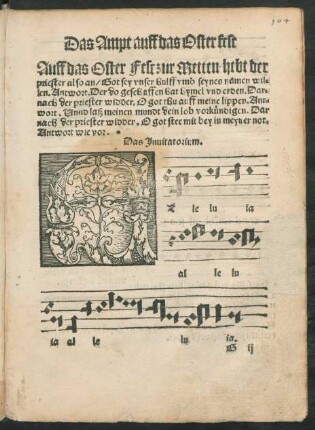 Das Ampt auff das Oster fest
Auff das Oster Fest zur Metten hebt der
priester also an/ Got sey vnser hulff vmb seynes namen wil-
len. Antwort. Der do geschaffen hat hymel vnd erden. Dar-
nach der priester widder, O got thu auff meine lippen. Ant-
wort. Vnnd laß meinen mundt dein lob vorkündigen. Dar
nach der priester widder, O got stee mit bey in meyner not.
Antwort wie vor.
Das Inuitatorium.
A le lu ia
al le lu
ia al le lu ia.
G ij